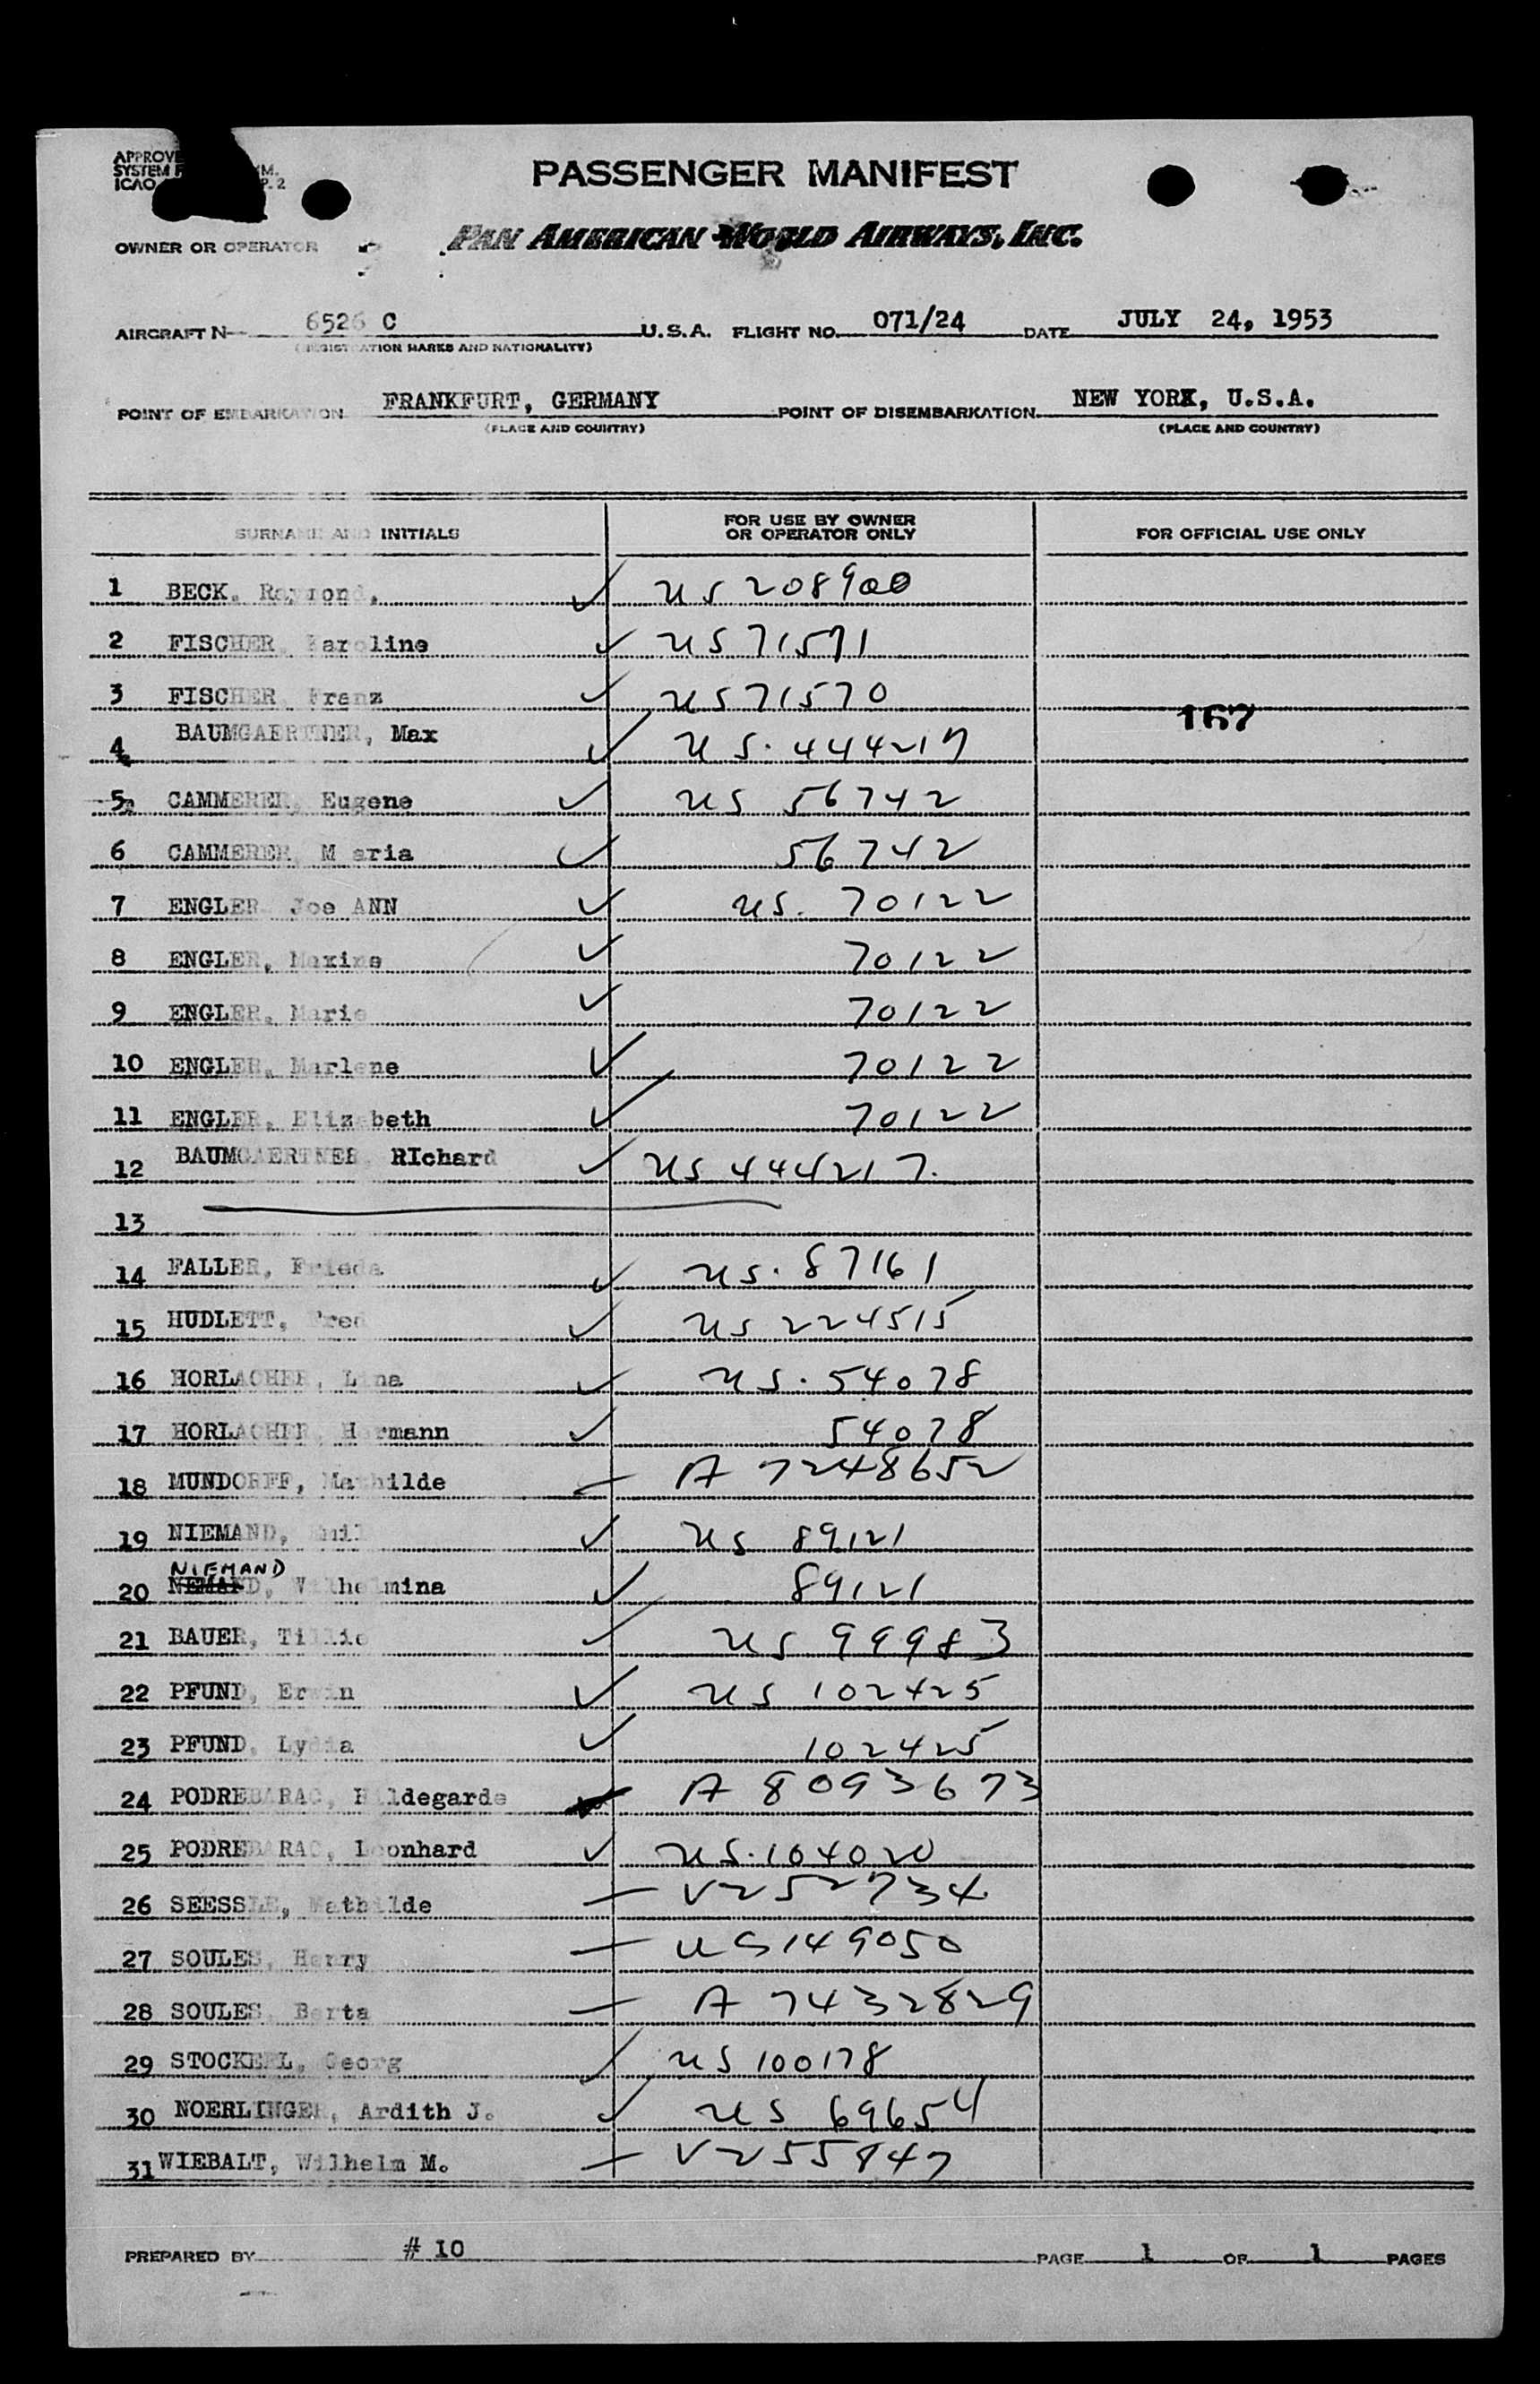 PASSENGER MANIFEST
OWNER OR OPERATOR PAN AMERICAN WORLD AIRWAYS, INC.
AIRCRAFT N 6526 C U.S.A. FLIGHT NO. 071/24 DATE JULY 24, 1953
(REGISTRATION MARKS AND NATIONALITY)
POINT OF EMBARKATION FRANKFURT, GERMANY POINT OF DISEMBARKATION NEW YORK, U.S.A.
(PLACE AND COUNTRY) (PLACE AND COUNTRY)
SURNAME AND INITIALS FOR USE BY OWNER OR OPERATOR ONLY FOR OFFICIAL USE ONLY
1 BECK, Raymond, ✓ US 208900
2 FISCHER, Karoline ✓ US 71571
3 FISCHER, Franz ✓ US 71570
167
4 BAUMGAERTNER, Max ✓ US. 444217
5 CAMMERER, Eugene ✓ US 56742
6 CAMMERER, M aria ✓ 56742
7 ENGLER, Joe ANN ✓ US. 70122
8 ENGLER, Maxine ✓ 70122
9 ENGLER, Marie ✓ 70122
10 ENGLER, Marlene ✓ 70122
11 ENGLER, Elizabeth ✓ 70122
12 BAUMGAERTNER, RIchard ✓ US 444217.
13
14 FALLER, Frieda ✓ US. 87161
15 HUDLETT, Fred ✓ US 224515
16 HORLACHER, Lina ✓ US. 54078
17 HORLACHER, Hermann ✓ 54078
18 MUNDORFF, Mathilde — A 7248652
19 NIEMAND, Emil ✓ US 89121
20 NIEMAND, Wilhelmina ✓ 89121
21 BAUER, Tillie ✓ US 99983
22 PFUND, Erwin ✓ US 102425
23 PFUND, Lydia ✓ 102425
24 PODREBARAC, Hildegarde A 8093673
25 PODREBARAC, Leonhard ✓ US. 104020
26 SEESSLE, Mathilde — V252734
27 SOULES, Harry — US149050
28 SOULES, Berta — A 7432829
29 STOCKERL, Georg ✓ US 100178
30 NOERLINGER, Ardith J. ✓ US 69654
31 WIEBALT, Wilhelm M. — V255847
PREPARED BY # 10 PAGE 1 OF 1 PAGES